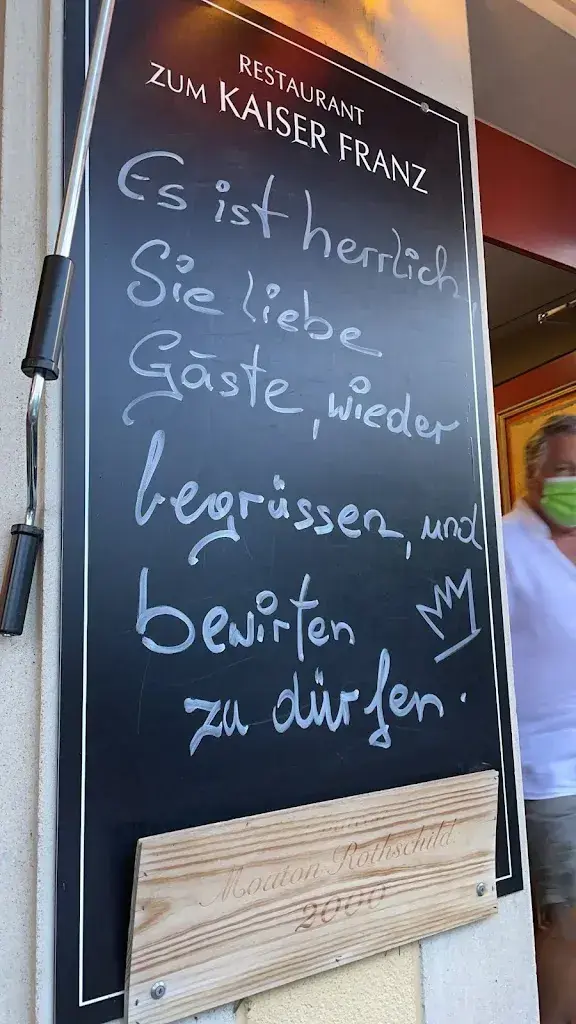 RESTAURANT
ZUM KAISER FRANZ
Es ist herrlich,
Sie liebe
Gäste, wieder
begrüssen, und
bewirten
zu dürfen.
Mouton Rothschild
2000